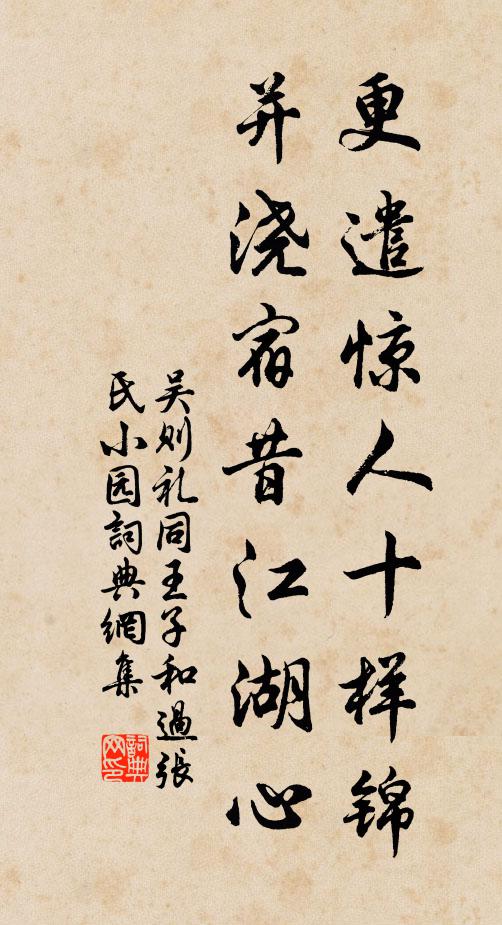 更遣惊人十样锦
并浇宿昔江湖心
吴则礼同王子和過張
氏小园詞典網集
詞典
网印